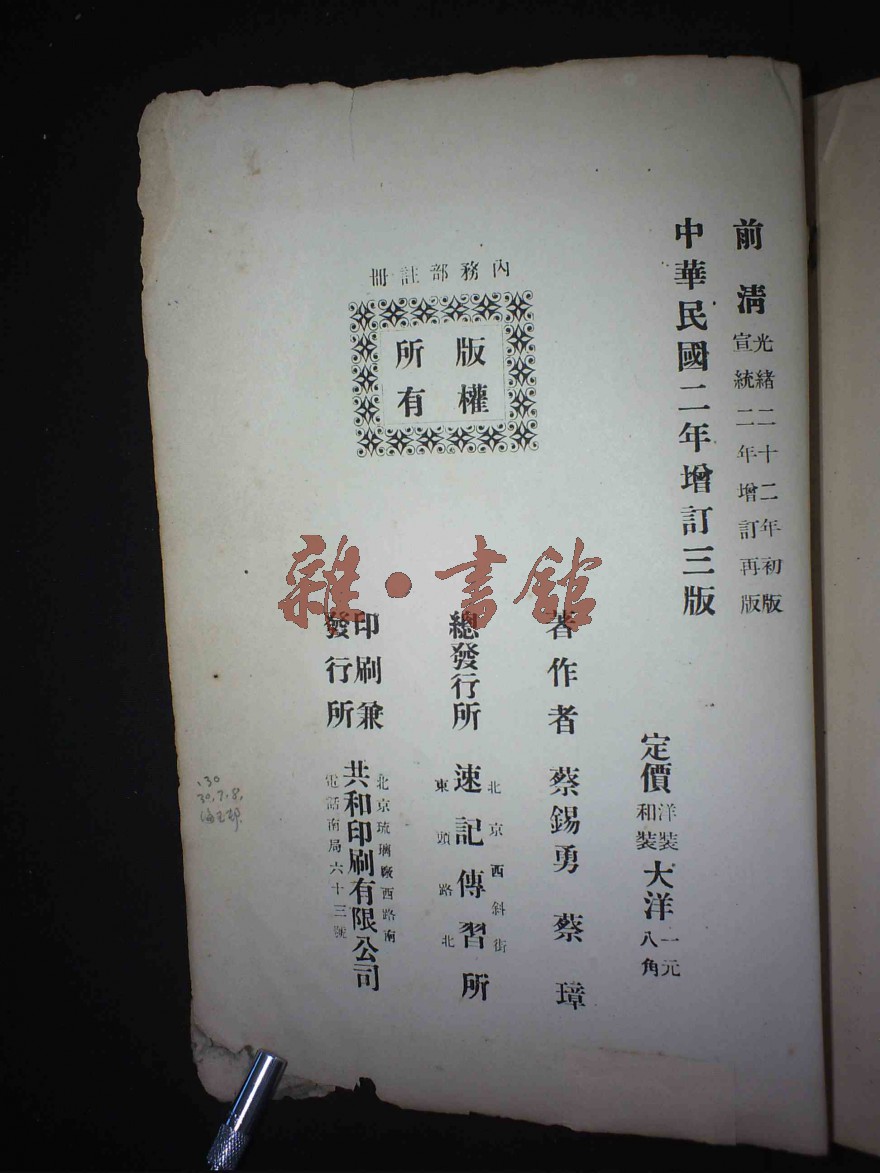 前清
光緒二十二年初版
宣統二年增訂再版
中華民國二年增訂三版
定價
洋裝
和裝
大洋
一元
八角
著作者 蔡錫勇 蔡璋
總發行所
北京西斜街
東頭路北
速記傳習所
印刷兼
發行所
北京琉璃廠西路南
共和印刷有限公司
電話南局六十三號
內務部註冊
版權
所有
雜·書館
.30
30.7.8.